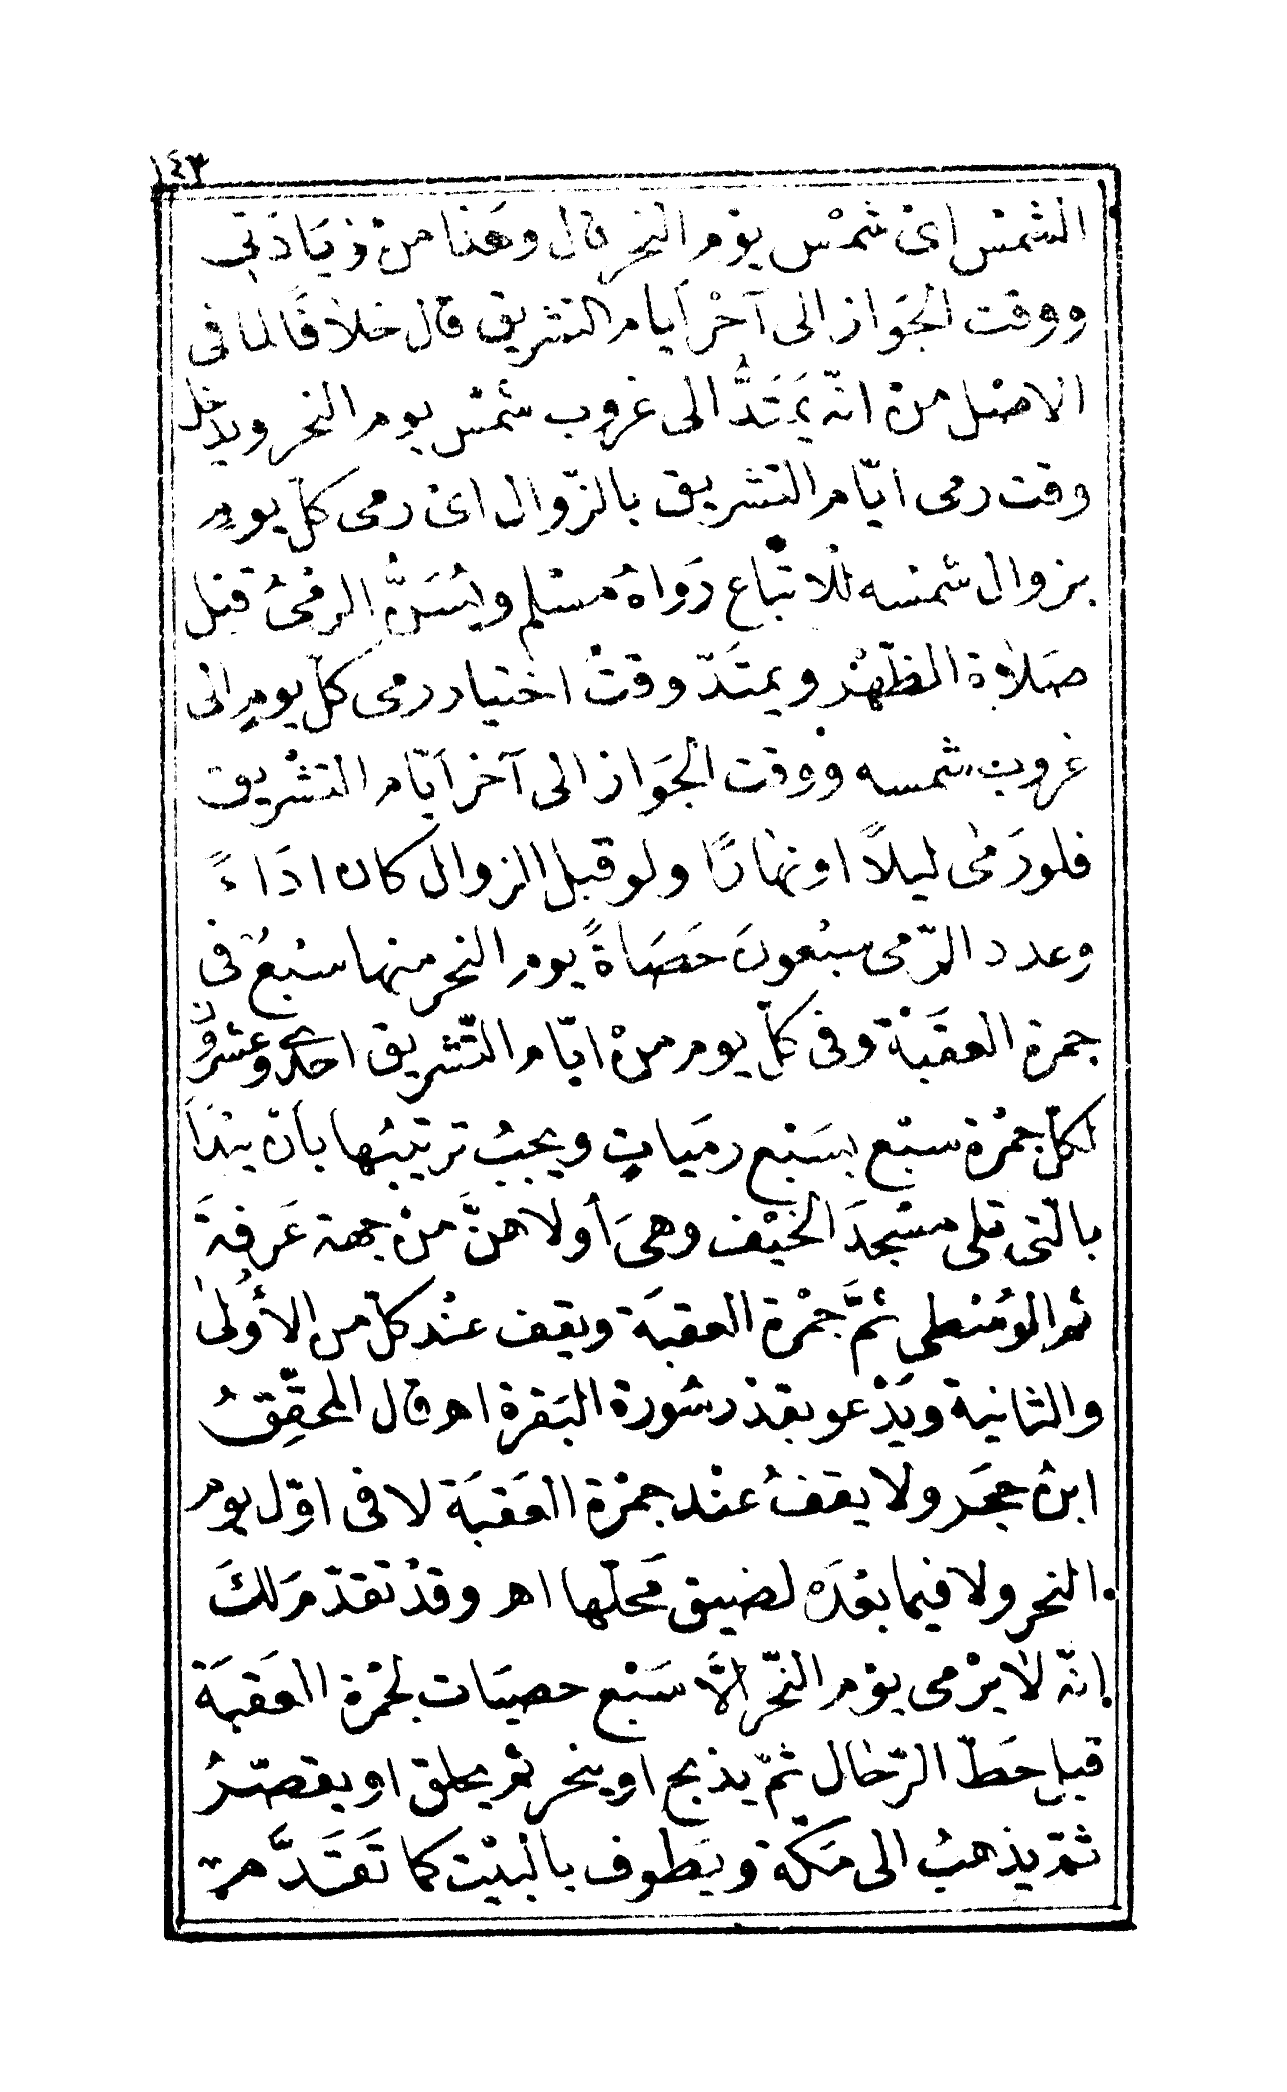 ١٤٣
الشمْس اىْ شمْس يوْم النحر قال وهَذا منْ زيَادَتى
ووقت الجَواز الى آخْر أيام التشريق قال خلاقًا لما فى
الاصْل منْ انّه يَمتَدُّ الى غروب شمْس يوم النحر ويدخل
وقت رمى ايّام التشريق بالزّوال اىْ رمى كلّ يومٍ
بزوال شمْسه للاتباع رَواهُ مسْلم ويُسَنُّ الرمْىُ قبْل
صَلاة الظّهْر ويمتَدّ وقتُ اختيار رمى كلّ يومٍ الى
غروب شمسه ووقت الجَواز الى آخر أيّام التشْريق
فلو رَمىٰ ليلاً او نهَارًا ولو قبل الزوال كان ادَاءً
وعدد الرّمى سبْعونَ حَصَاةً يوم النحر منها سبْعٌ فى
جمرة العقَبْة وفى كلّ يوم منْ ايّام التّشريق احدى وعشرون
لكلّ جمْرة سبْع بسَبْع رمَياتٍ ويجبُ ترتيبُها بأنْ يبْدَأ
بالّتى تلى مسْجدَ الخيْف وهىَ أولاهنَّ منْ جهة عَرفةَ
ثم الوُسْطى ثمَّ جمْرة العقبَة ويقف عنْد كلّ من الأُولىٰ
والثانية ويَدْعو بقدْر سُورة البَقرة اهـ قال المحقّقُ
ابنُ حجَر ولا يقفُ عنْد جمْرة العَقبَة لا فى اوّل يوم
النحر ولا فيما بعْدَه لضيق مَحلّها اهـ وقدْ تقدّم لكَ
انّه لا يرْمى يوْم النّحْر الّا سَبْع حصيَات لجمْرة العَقبَة
قبل حَطّ الرّحَال ثمّ يذبح او ينحر ثم يحلق او يقصّرُ
ثمّ يذهبُ الى مَكّة ويَطوف بالبيْت كما تَقَدَّمَ